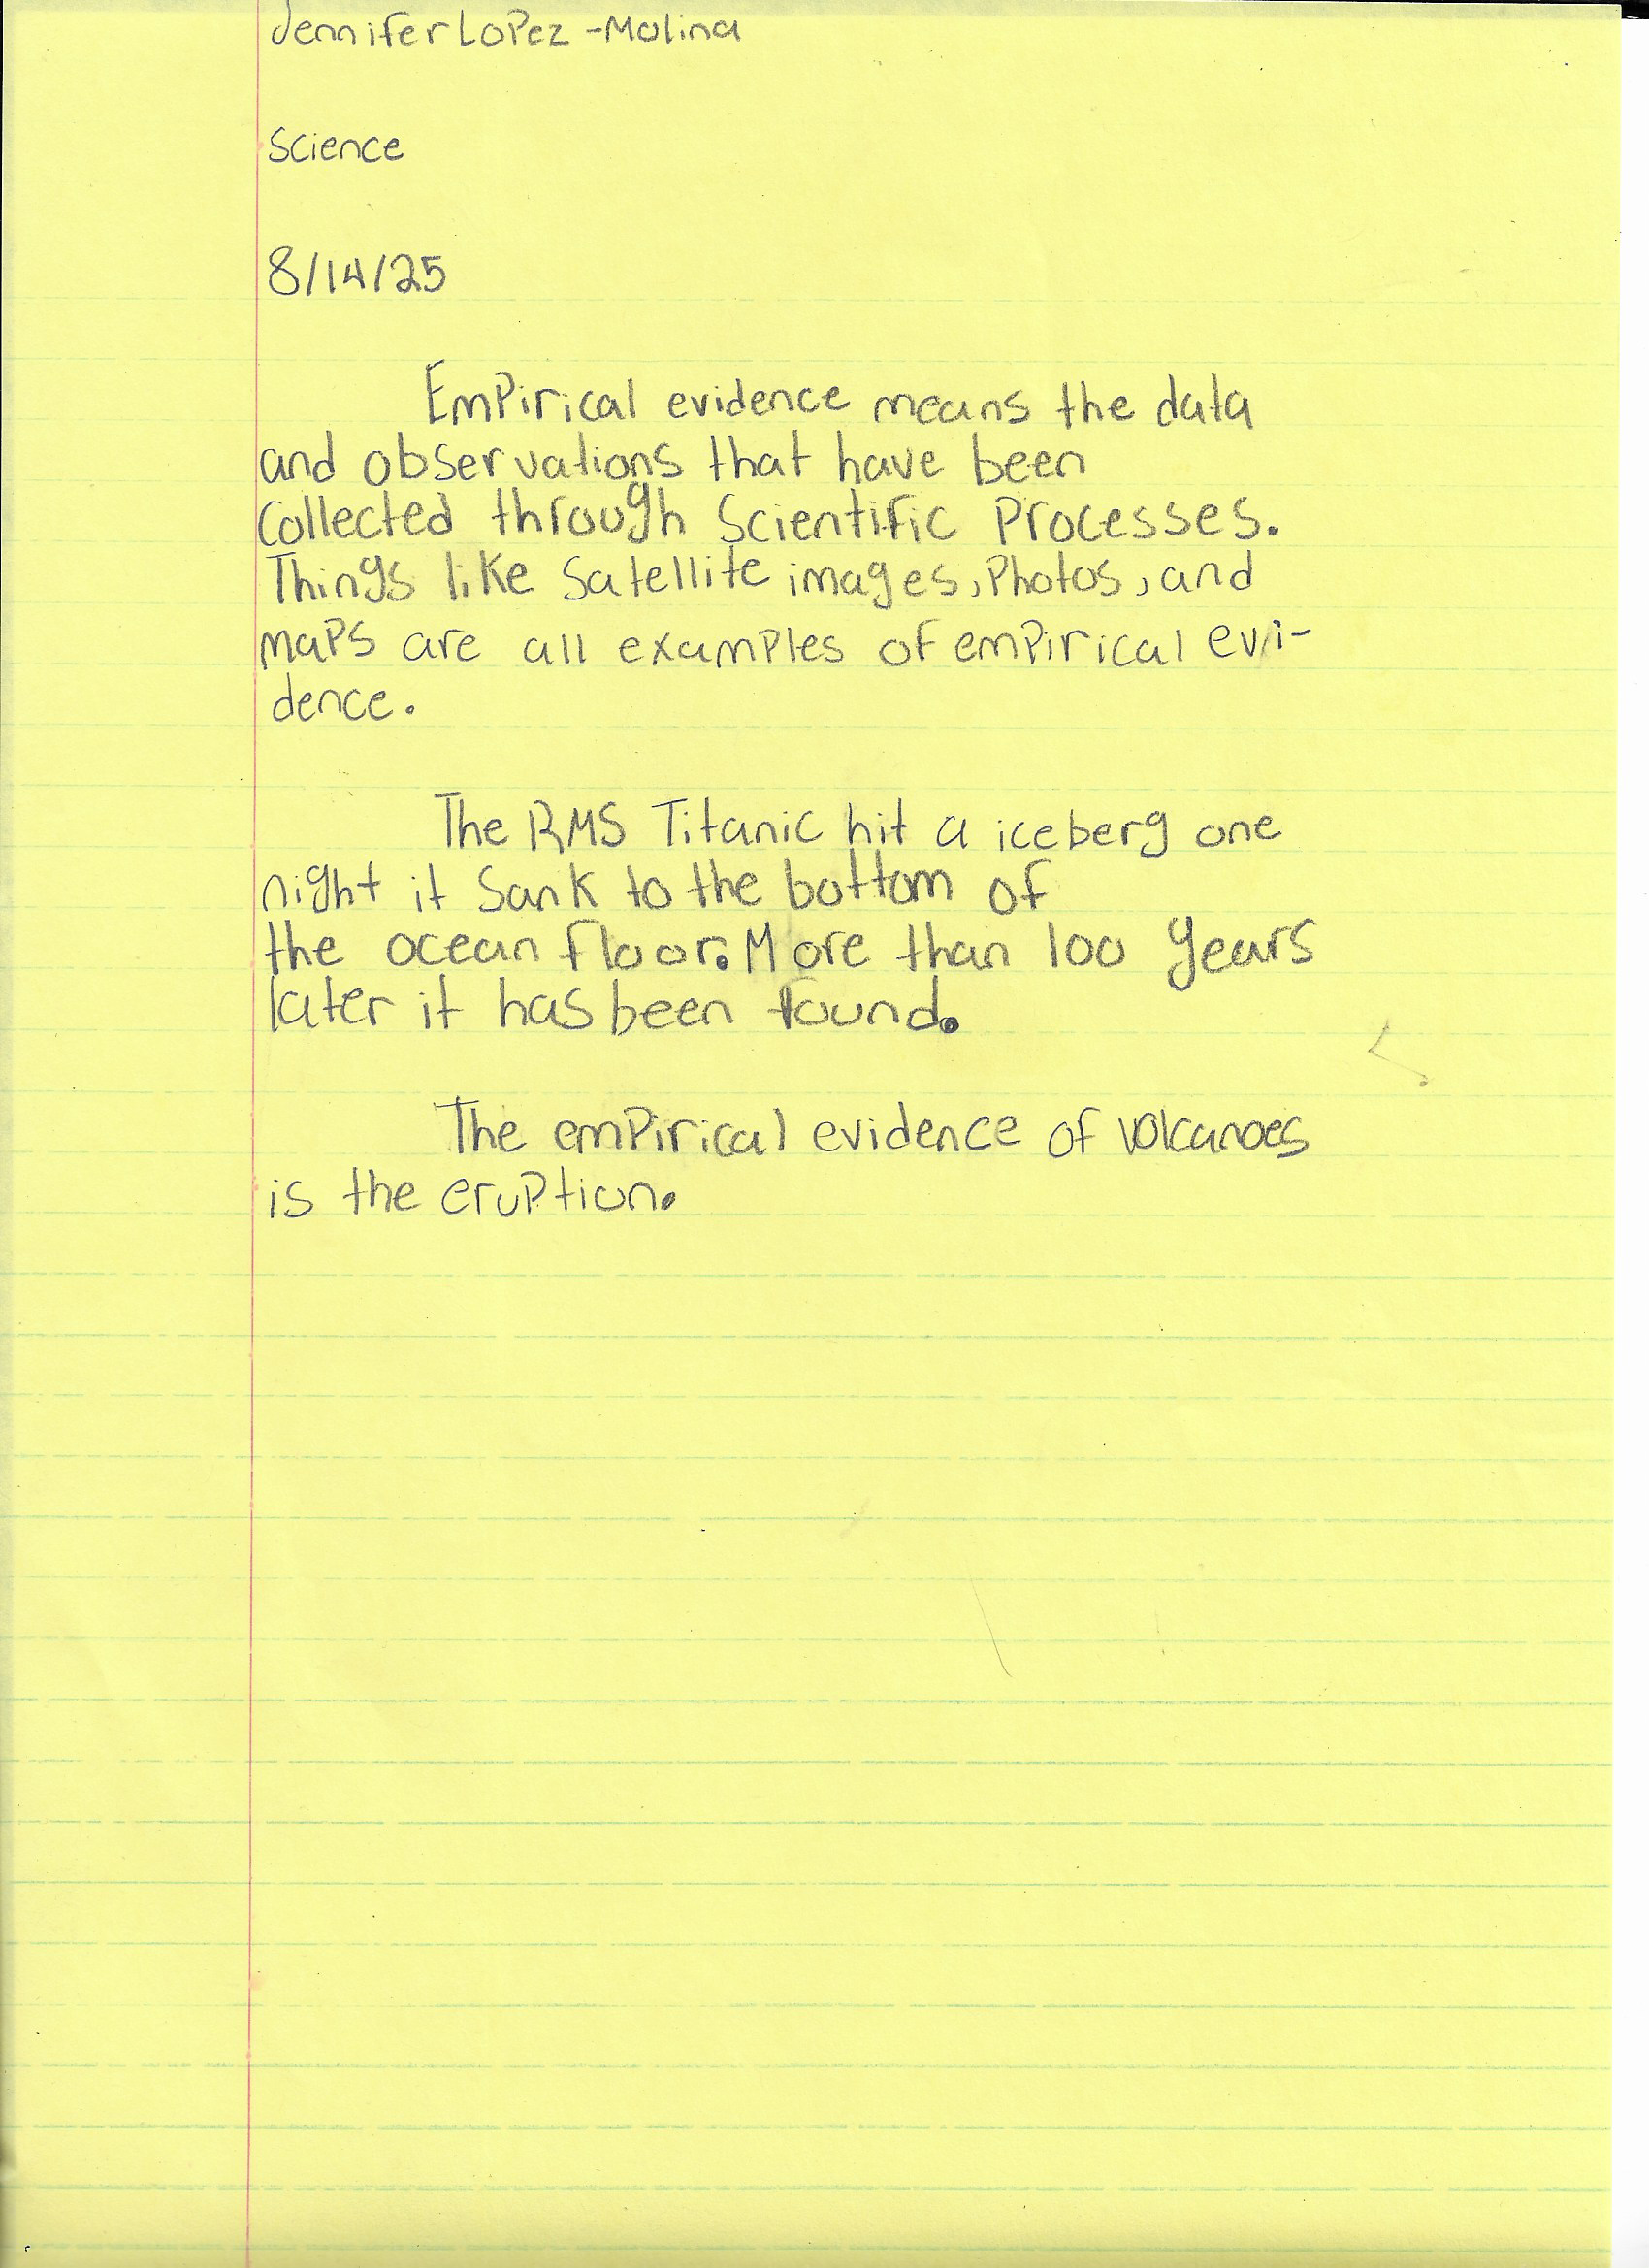 Jennifer Lopez-Molina
Science
8/14/25
Empirical evidence means the data
and observations that have been
collected through Scientific Processes.
Things like Satellite images, Photos, and
maps are all examples of empirical evi-
dence.
The RMS Titanic hit a iceberg one
night it Sank to the bottom of
the ocean floor. More than 100 years
later it has been found.
The empirical evidence of volcanoes
is the eruption.